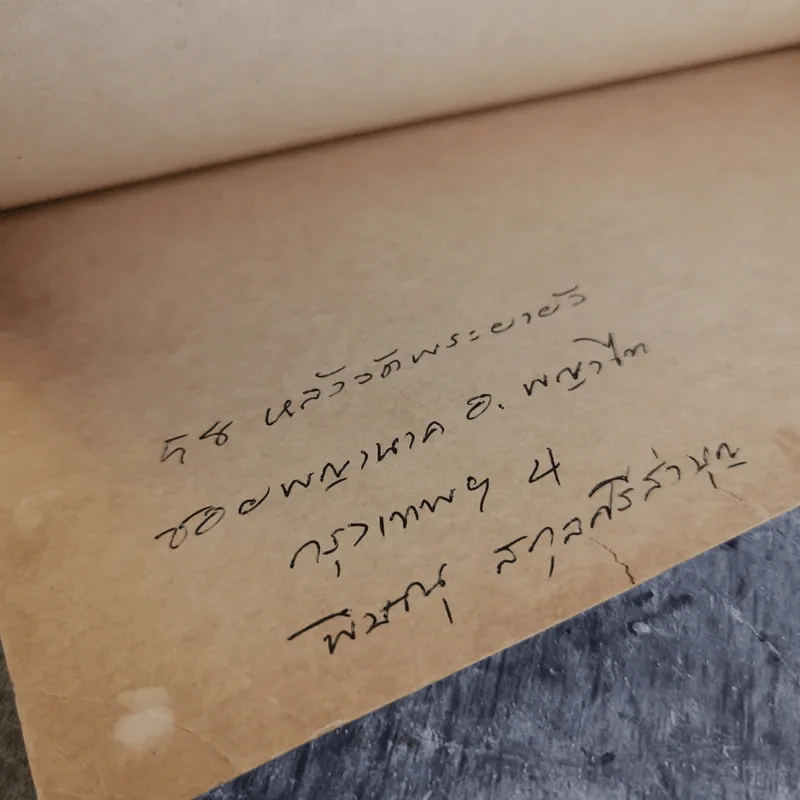 หลังวัดพระยายัง
ซอยพญานาค อ. พญาไท
กรุงเทพฯ 4
พิษณุ สกุลศรีสำ